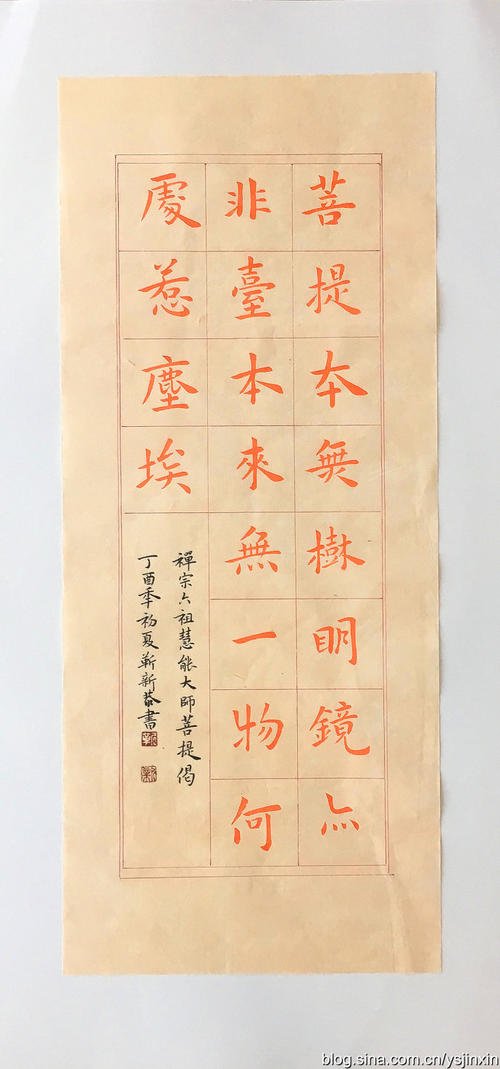 菩提本無樹明鏡亦
非臺本來無一物何
處惹塵埃
禪宗六祖慧能大師菩提偈
丁酉季初夏靳新恭書
blog.sina.com.cn/ysjinxin